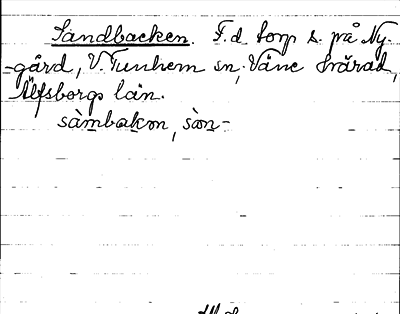 Sandbacken. F.d. torp s. på Ny-
gård, V. Tunhem sn, Väne härad,
Älfsborgs län.
sàmbakən, sàn-